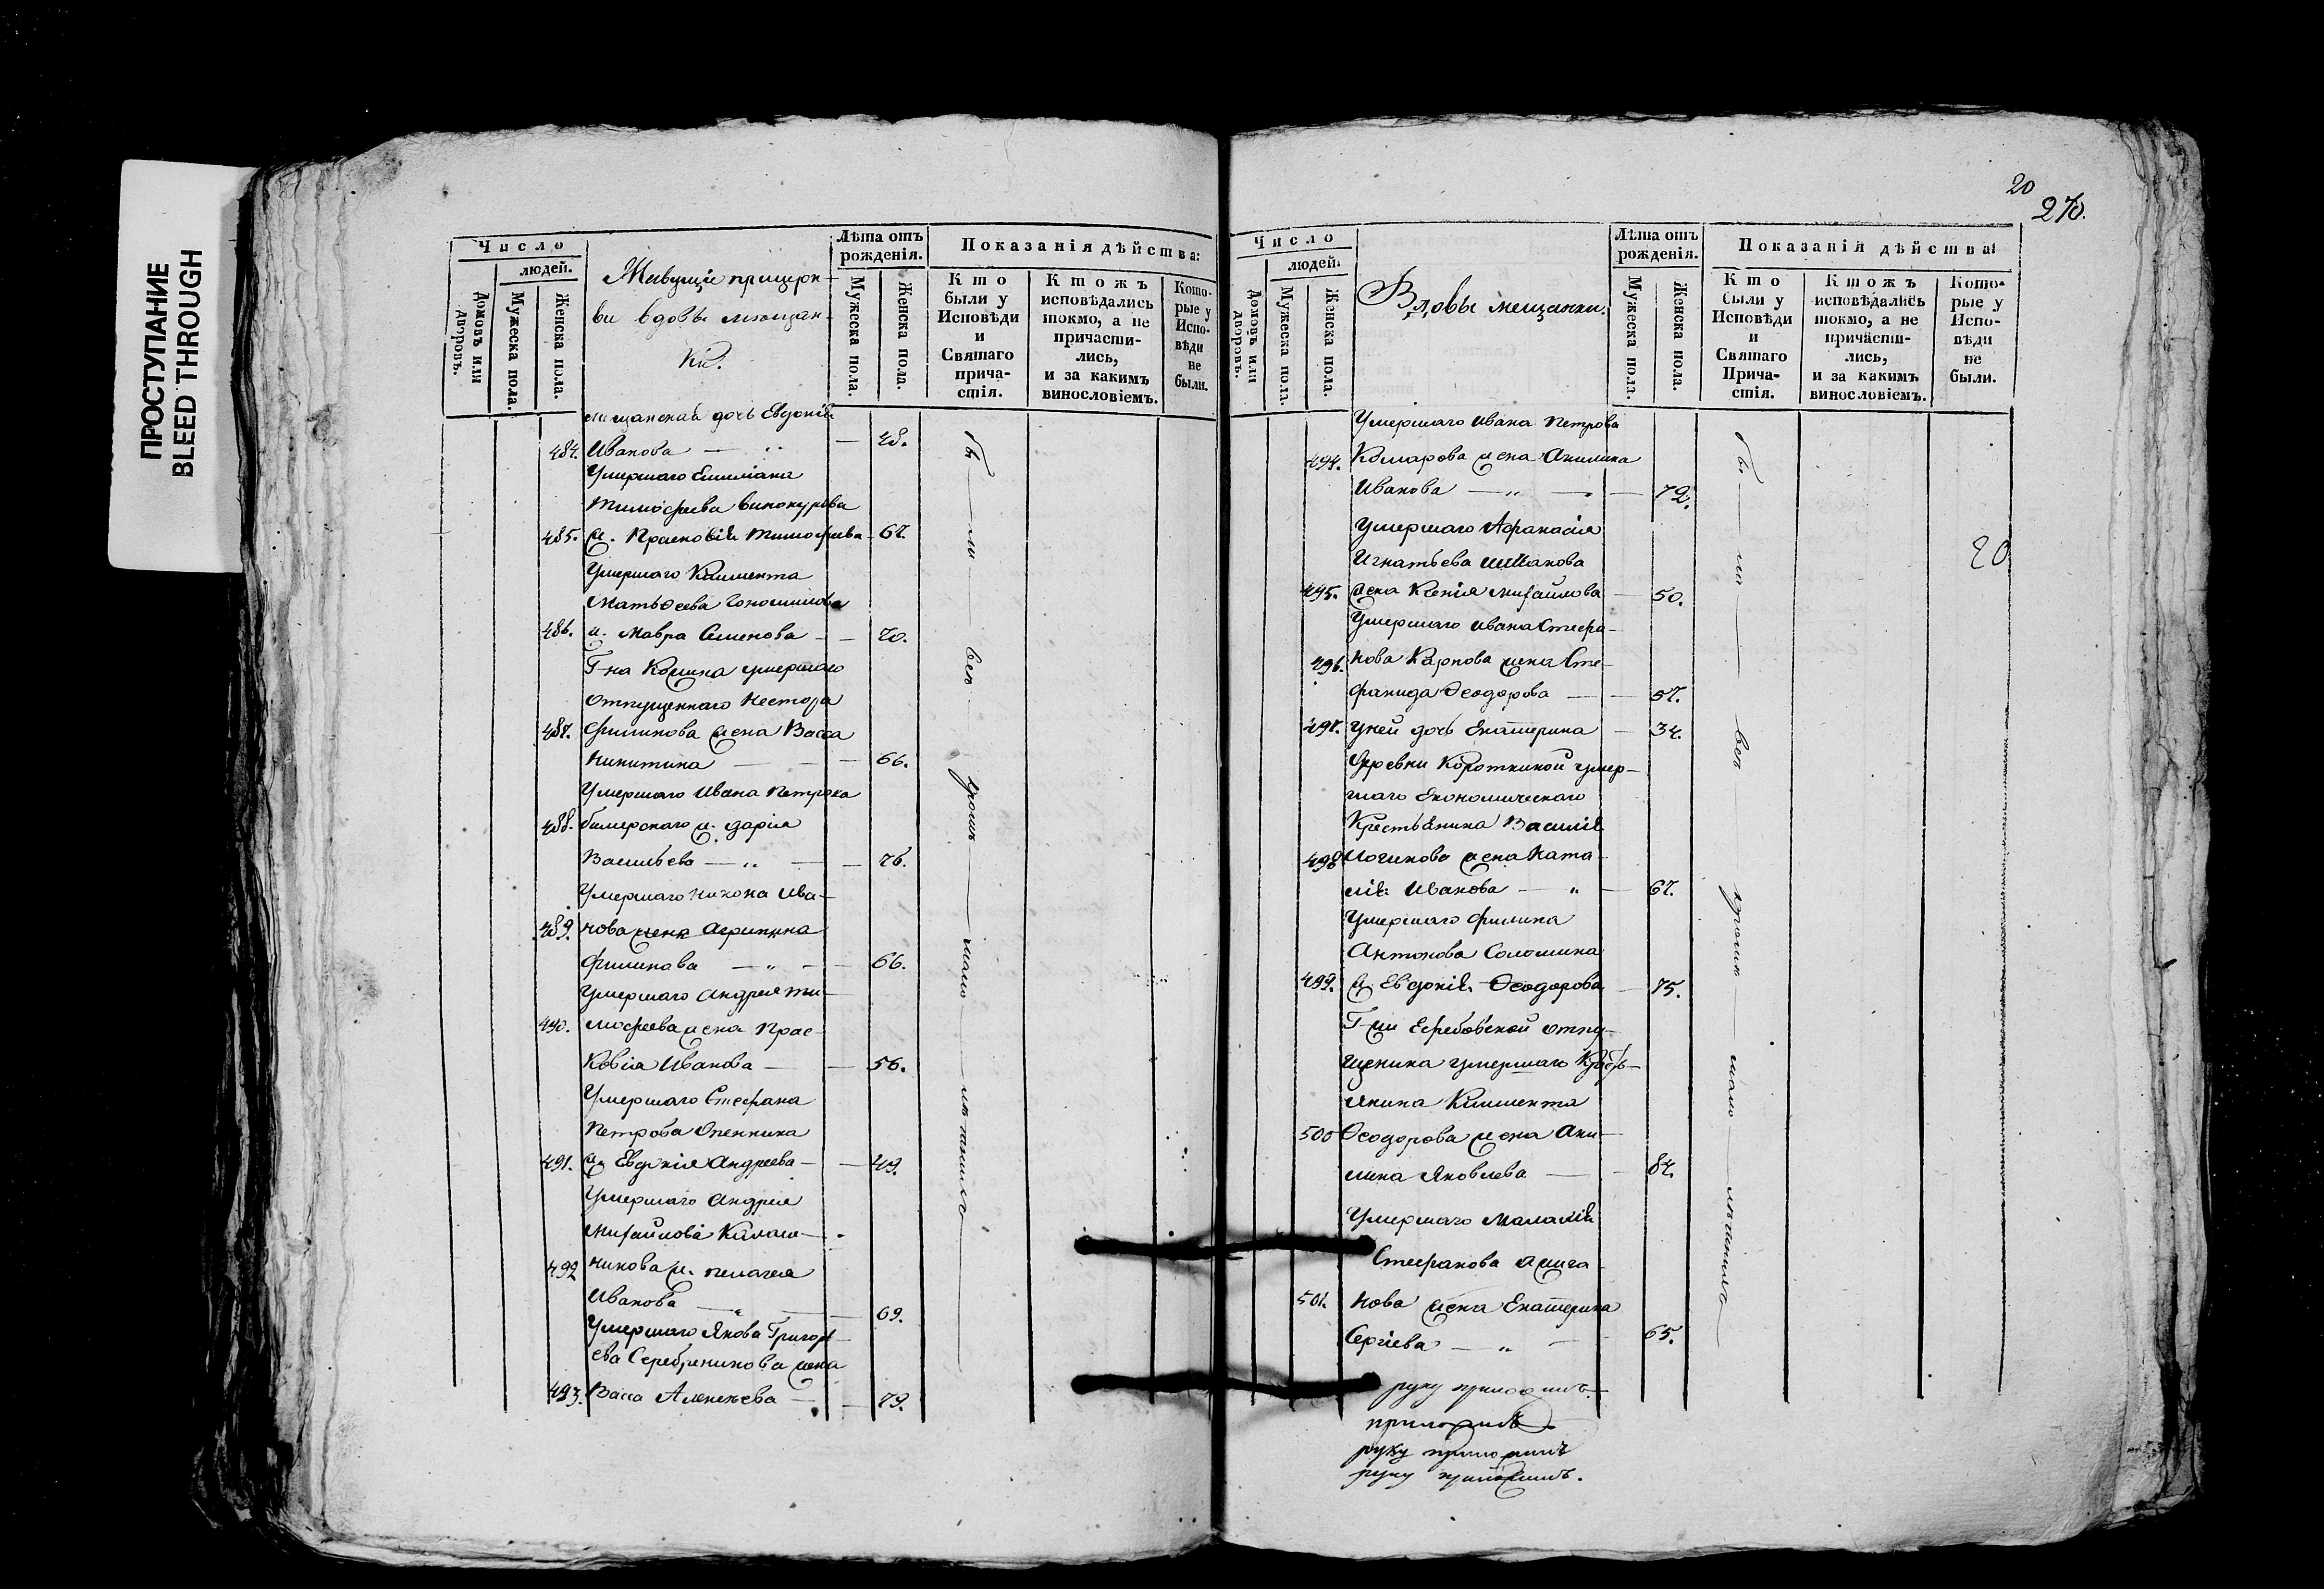 ПРОСТУПАНИЕ
BLEED THROUGH
Число
людей.
Домовъ или дворовъ.
Мужеска пола.
Женска пола.
Живущіе при церк-
ви вдовы мещан-
ки.
Лѣта отъ рожденія.
Мужеска пола.
Женска пола.
Показанія дѣйства:
Кто были у Исповѣди и Святаго причастія.
Ктожъ исповѣдались токмо, а не причастились, и за какимъ винословіемъ.
Которые у Исповѣди не были.
мещанская дочь Евдокія
484. Иванова — 48.
Умершаго Емиліана
Тимофеева Винокурова
485. ж. Прасковія Тимофеева 67.
Умершаго Климента
Матѳеева
486. ж. Мавра Семенова — 70.
Г-на умершаго
отпущеннаго Нестора
487. Филипова жена Васса
Никитина — 66.
Умершаго Ивана Петрова
488. ж. Дарія
Васильева — 76.
Умершаго Никона Ива-
489. нова жена Агрипина
Филипова — 66.
Умершаго Андрея Ти-
490. мофеева жена Прас-
ковія Иванова — 56.
Умершаго Стефана
Петрова Опенкина
491. ж. Евдокія Андреева — 49.
Умершаго Андрея
Михайлова Калаш-
492 никова ж. Пелагея
Иванова — 69.
Умершаго Якова Григорь-
ева Серебреникова жена
493. Васса Алексеева — 79.
бы — ли — вси
20
270.
Число
людей.
Домовъ или дворовъ.
Мужеска пола.
Женска пола.
Вдовы мещанки.
Лѣта отъ рожденія.
Мужеска пола.
Женска пола.
Показанія дѣйства:
Кто были у Исповѣди и Святаго Причастія.
Ктожъ исповѣдались токмо, а не причастились, и за какимъ винословіемъ.
Которые у Исповѣди не были.
Умершаго Ивана Петрова
494. Комарова жена Акилина
Иванова — 72.
Умершаго Афанасія
Игнатьева Шишакова
495. жена Ксенія Михайлова — 50.
Умершаго Ивана Стефа-
496. нова Карпова жена Сте-
фанида Ѳеодорова — 57.
497. У ней дочь Екатерина — 34.
Деревни Короткиной умер-
шаго Економическаго
Крестьянина Василія
498 Логинова жена Ната-
лія Иванова — 67.
Умершаго Филипа
Антонова Соломина
499. ж. Евдокія Ѳеодорова — 75.
Г-жи отпу-
щеника умершаго Кресть-
янина Климента
500 Ѳеодорова жена Аки-
лина Яковлева — 84.
Умершаго Малахія
Стефанова
501. нова жена Екатерина
Сергіева — 65.
бы — ли — вси
20
руку приложилъ
приложилъ
руку приложилъ
руку приложилъ.